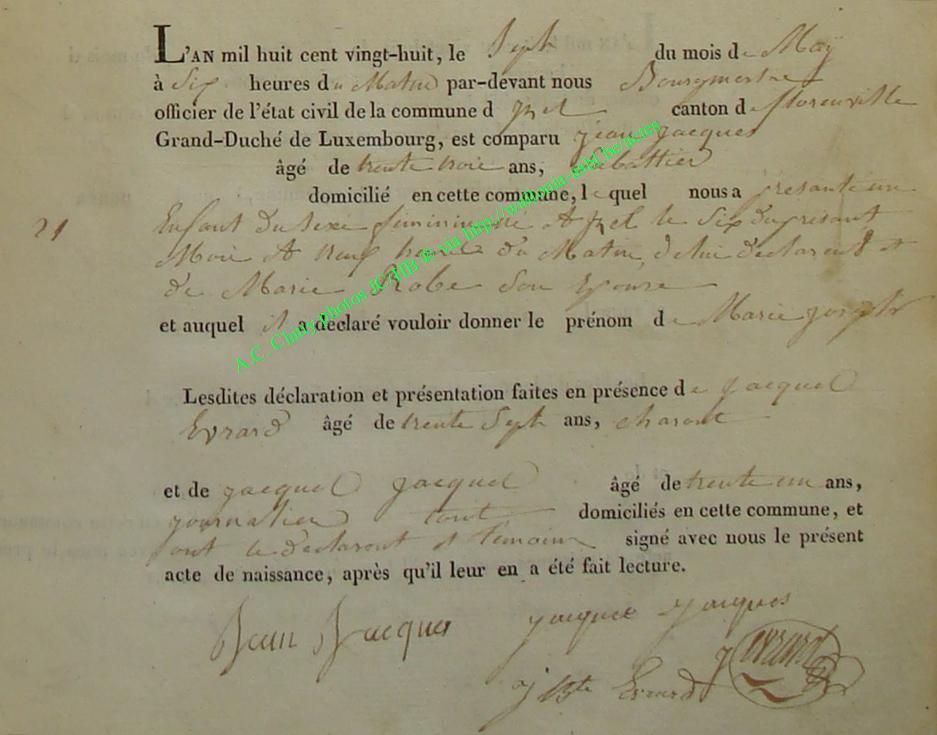 L'AN mil huit cent vingt-huit, le Sept du mois de Maÿ
à Six heures du Matin par-devant nous Bourgmestre
officier de l'état civil de la commune d jzel canton de florenville
Grand-Duché de Luxembourg, est comparu jean jacques
âgé de trente trois ans,
domicilié en cette commune, le quel nous a presanté un
21
Enfant du sexe feminin née A jzel le Six du presant
Moi A neuf heures du Matin, de lui declarent et
de Marie Robe Son Epouse
et auquel il a déclaré vouloir donner le prénom de Marie joseph
Lesdites déclaration et présentation faites en présence de jacque
Evrard âgé de trente Sept ans, charont
et de jacque jacque âgé de trente un ans,
journalier tout domiciliés en cette commune, et
ont le declaront et temoin signé avec nous le présent
acte de naissance, après qu'il leur en a été fait lecture.
Jean Jacques jacques jacques
j Evrard
j Bte Evrard
A.C. Chiny photos JCHB ® via http://wallonia-asbl.be/actes